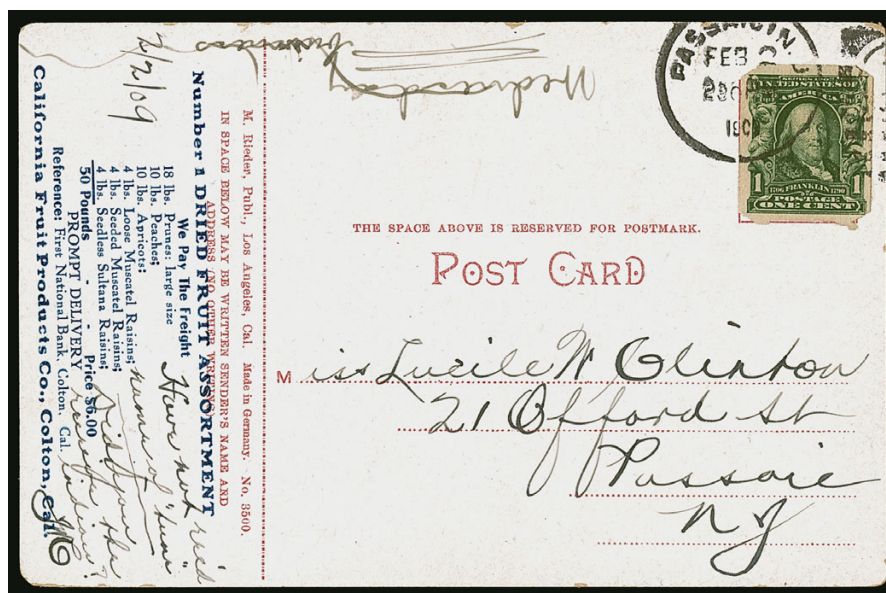 PASSAIC, N.
FEB 2
190
SERIES 1902
UNITED STATES OF
AMERICA
1
1
1706 FRANKLIN 1790
POSTAGE
ONE CENT
THE SPACE ABOVE IS RESERVED FOR POSTMARK.
POST CARD
Miss Lucile W Clinton
21 Offord St
Passaic
N J
Wednesday
M. Rieder, Publ., Los Angeles, Cal. Made in Germany. No. 3500.
IN SPACE BELOW MAY BE WRITTEN SENDER'S NAME AND
ADDRESS (NO OTHER WRITING)
Number 1 DRIED FRUIT ASSORTMENT
We Pay The Freight
18 lbs. Prunes: large size
10 lbs. Peaches;
10 lbs. Apricots;
4 lbs. Loose Muscatel Raisins;
4 lbs. Seeded Muscatel Raisins;
4 lbs. Seedless Sultana Raisins;
50 Pounds - - Price $6.00
PROMPT DELIVERY
Reference: First National Bank, Colton, Cal.
California Fruit Products Co., Colton, Cal.
2/2/09
Have not
Did you
receive the